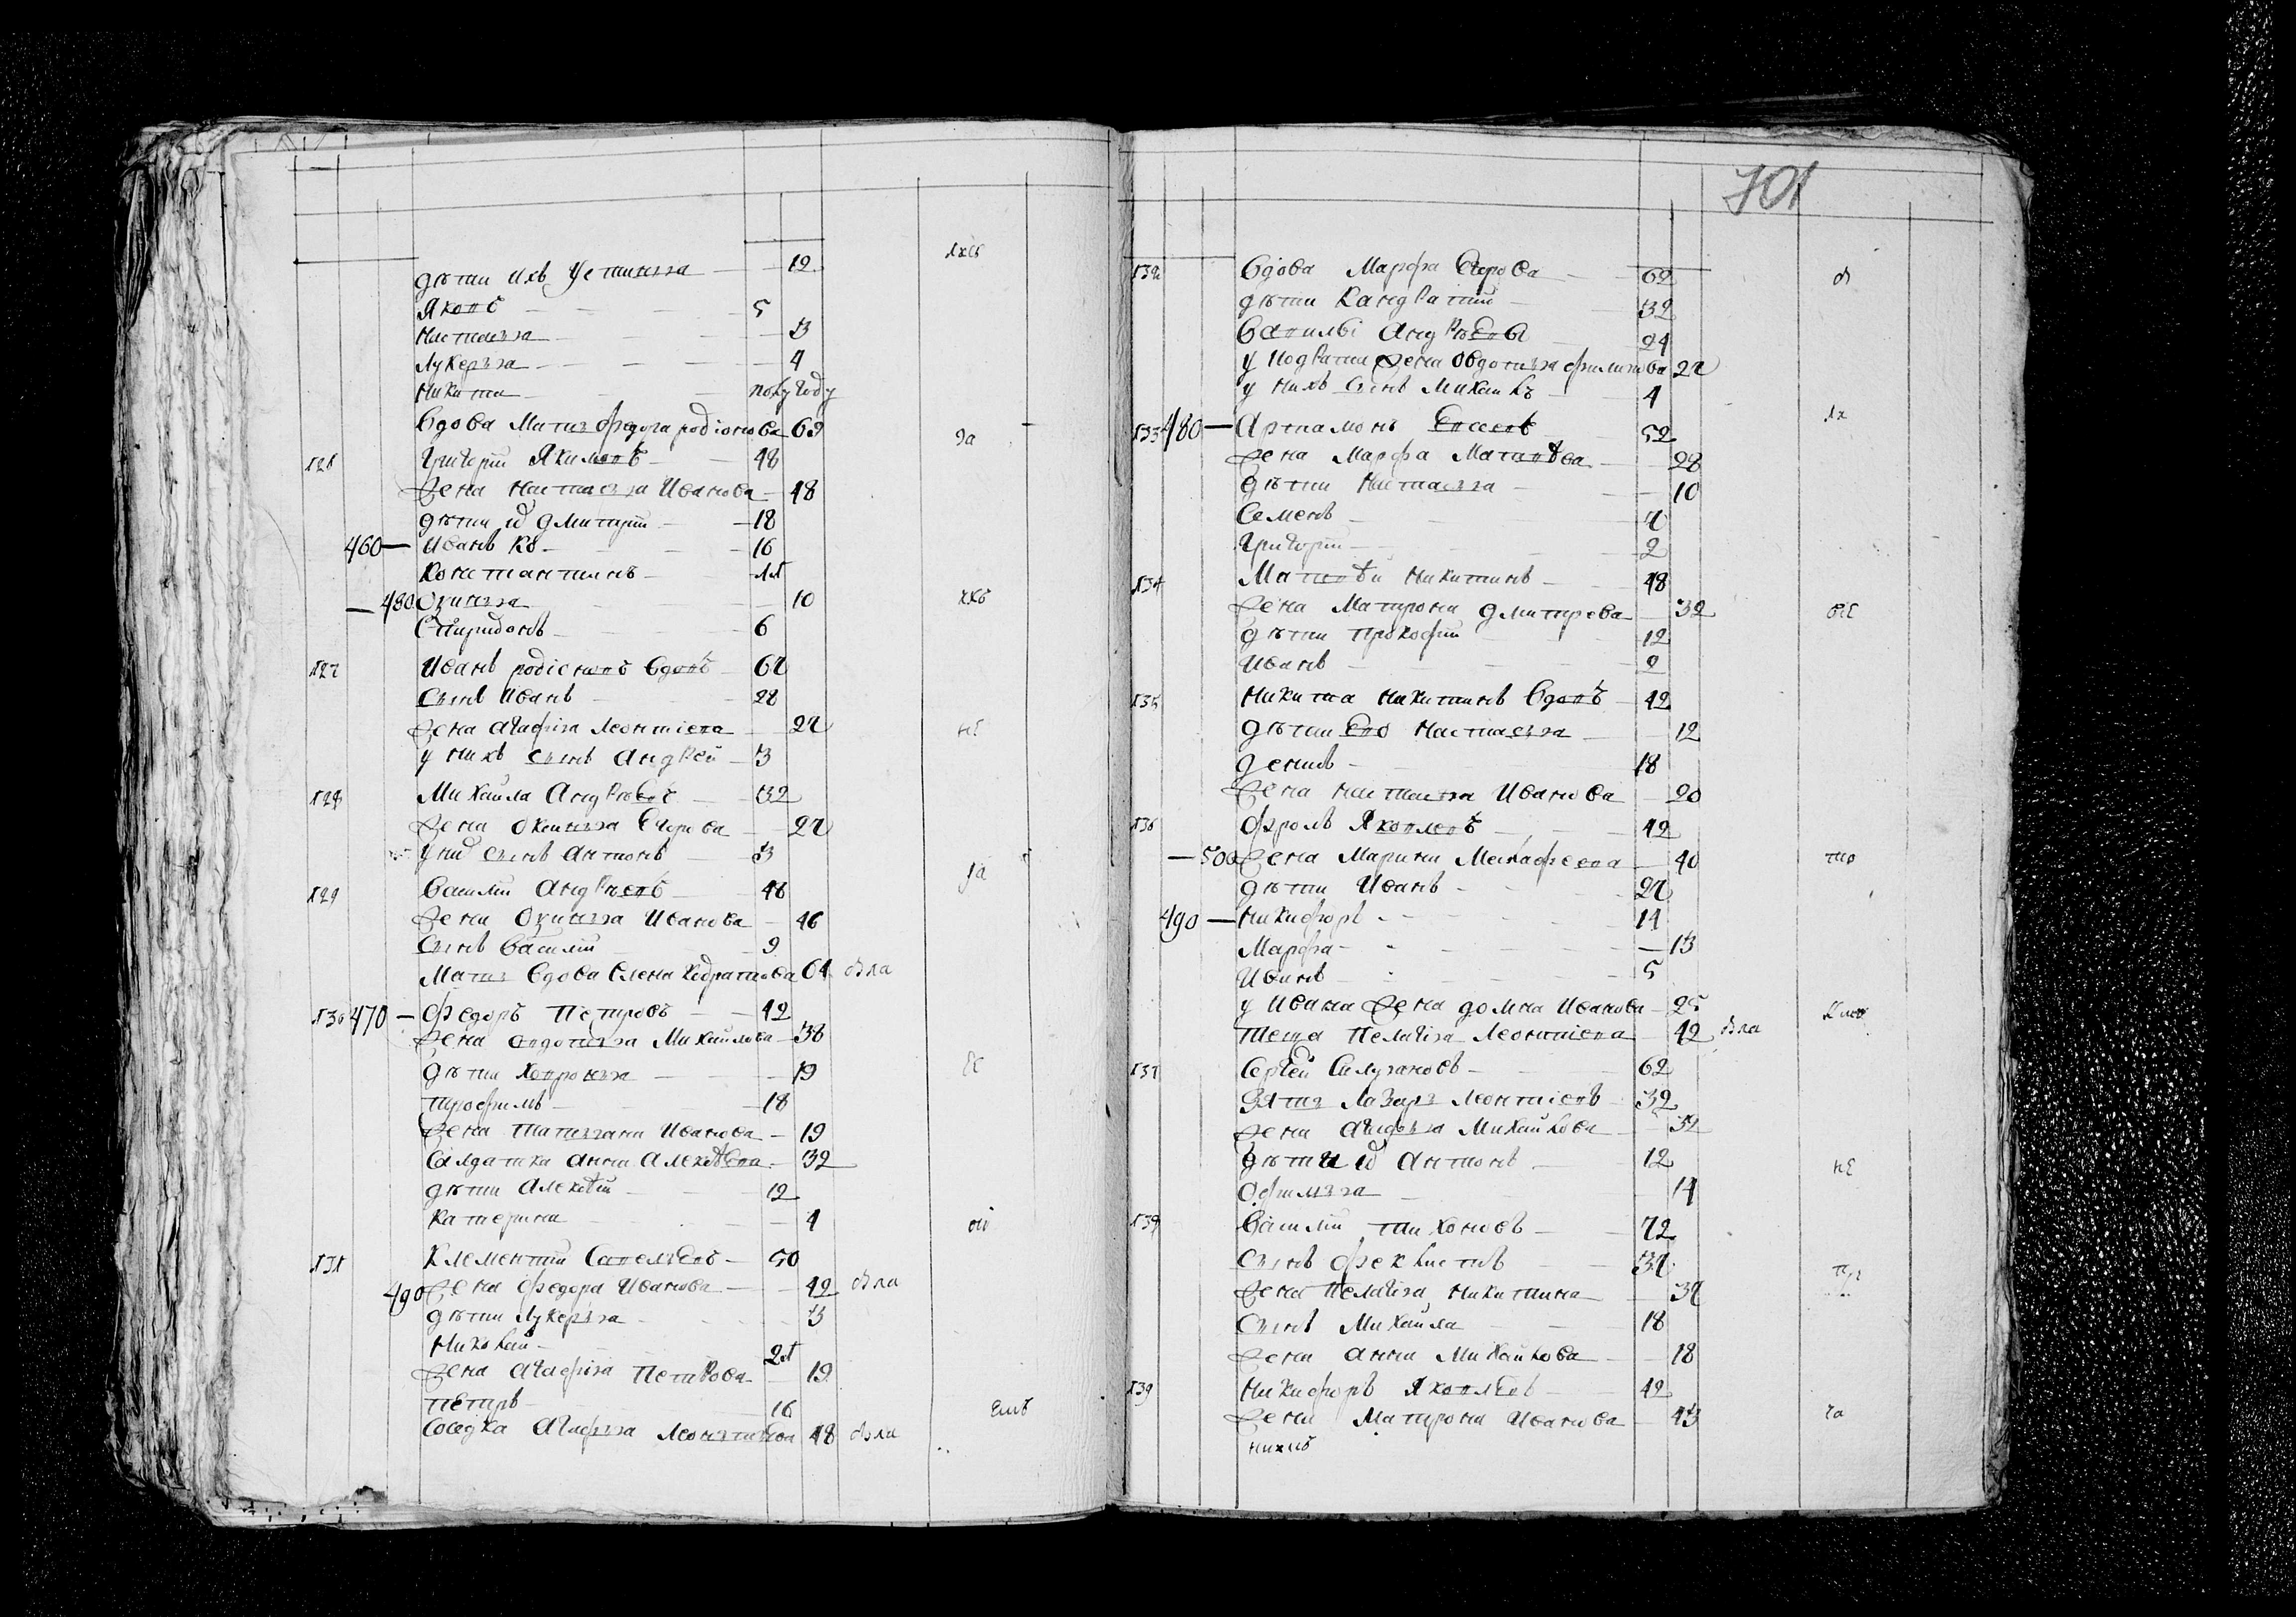 дѣти ихъ Устинья 12
Яковъ 5
Настасья 3
Лукерья 4
Никита полугоду
Вдова мать Федора родіонова 69
126 Григорій Якимовъ 48
жена Настасья Иванова 48
дѣти Дмитрій 18
460 — Иванъ 16
Константинъ
480 Оксинья 10
Спиридонъ 6
127 Иванъ родіоновъ вдовъ 67
сынъ Иванъ 28
жена Агафья Леонтіева 27
у нихъ сынъ Андрей 3
128 Михайла Андрѣевъ 32
жена Оксинья Егорова 27
сынъ Антонъ 3
129 Василій Андрѣевъ 48
жена Оксинья Иванова 46
сынъ Василій 9
Мать вдова Елена 64
130 470 — Федоръ Петровъ 42
жена Овдотья Михайлова 36
дѣти Хевронья 19
трофимъ 18
жена Татьяна Иванова 19
Салдатка Анна Алексѣева 32
дѣти Алексѣй 12
Катерина 4
131 Клементій Савельевъ 50
490 жена Федора Иванова 42
дѣти Лукерья 3
Николай
жена Агафья Петрова 19
Петръ 16
Соседка Агафья 48
701
132 Вдова Марфа Егорова 62
дѣти Кандратій 32
Василій Андрѣевы 24
у Кодратія жена Овдотья филипова 27
у нихъ сынъ Михайла 4
133 480 — Артамонъ 52
жена Марфа Матвѣева 28
дѣти Настасья 10
Семенъ 7
Григорій 2
134 Матвѣй Никитинъ 48
жена Матрона Дмитрева 32
дѣти Прокофій 12
Иванъ 2
135 Никита Никитинъ Вдовъ 42
дѣти ево Настасья 12
Денисъ 18
жена Настасья Иванова 20
136 Фролъ Яковлевъ 42
— 500 жена Марина 40
дѣти Иванъ 27
490 — Никифоръ 14
Марфа 13
Иванъ 5
у Ивана жена домна Иванова 25
теща Пелагѣя Леонтіева 42
137 Сергѣй 62
Зять Лазарь Леонтіевъ 32
жена Агафья Михайлова 32
дѣти Антонъ 12
Офимья 14
138 Василій тихоновъ 72
сынъ Феклистъ 37
жена Пелагѣя Никитина 37
сынъ Михайла 18
жена Анна Михайлова 18
139 Никифоръ Яковлевъ 42
жена Матрона Иванова 43